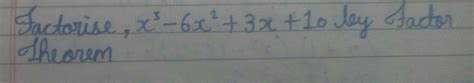 Factorise, x³-6x²+3x+10 by Factor
Theorem